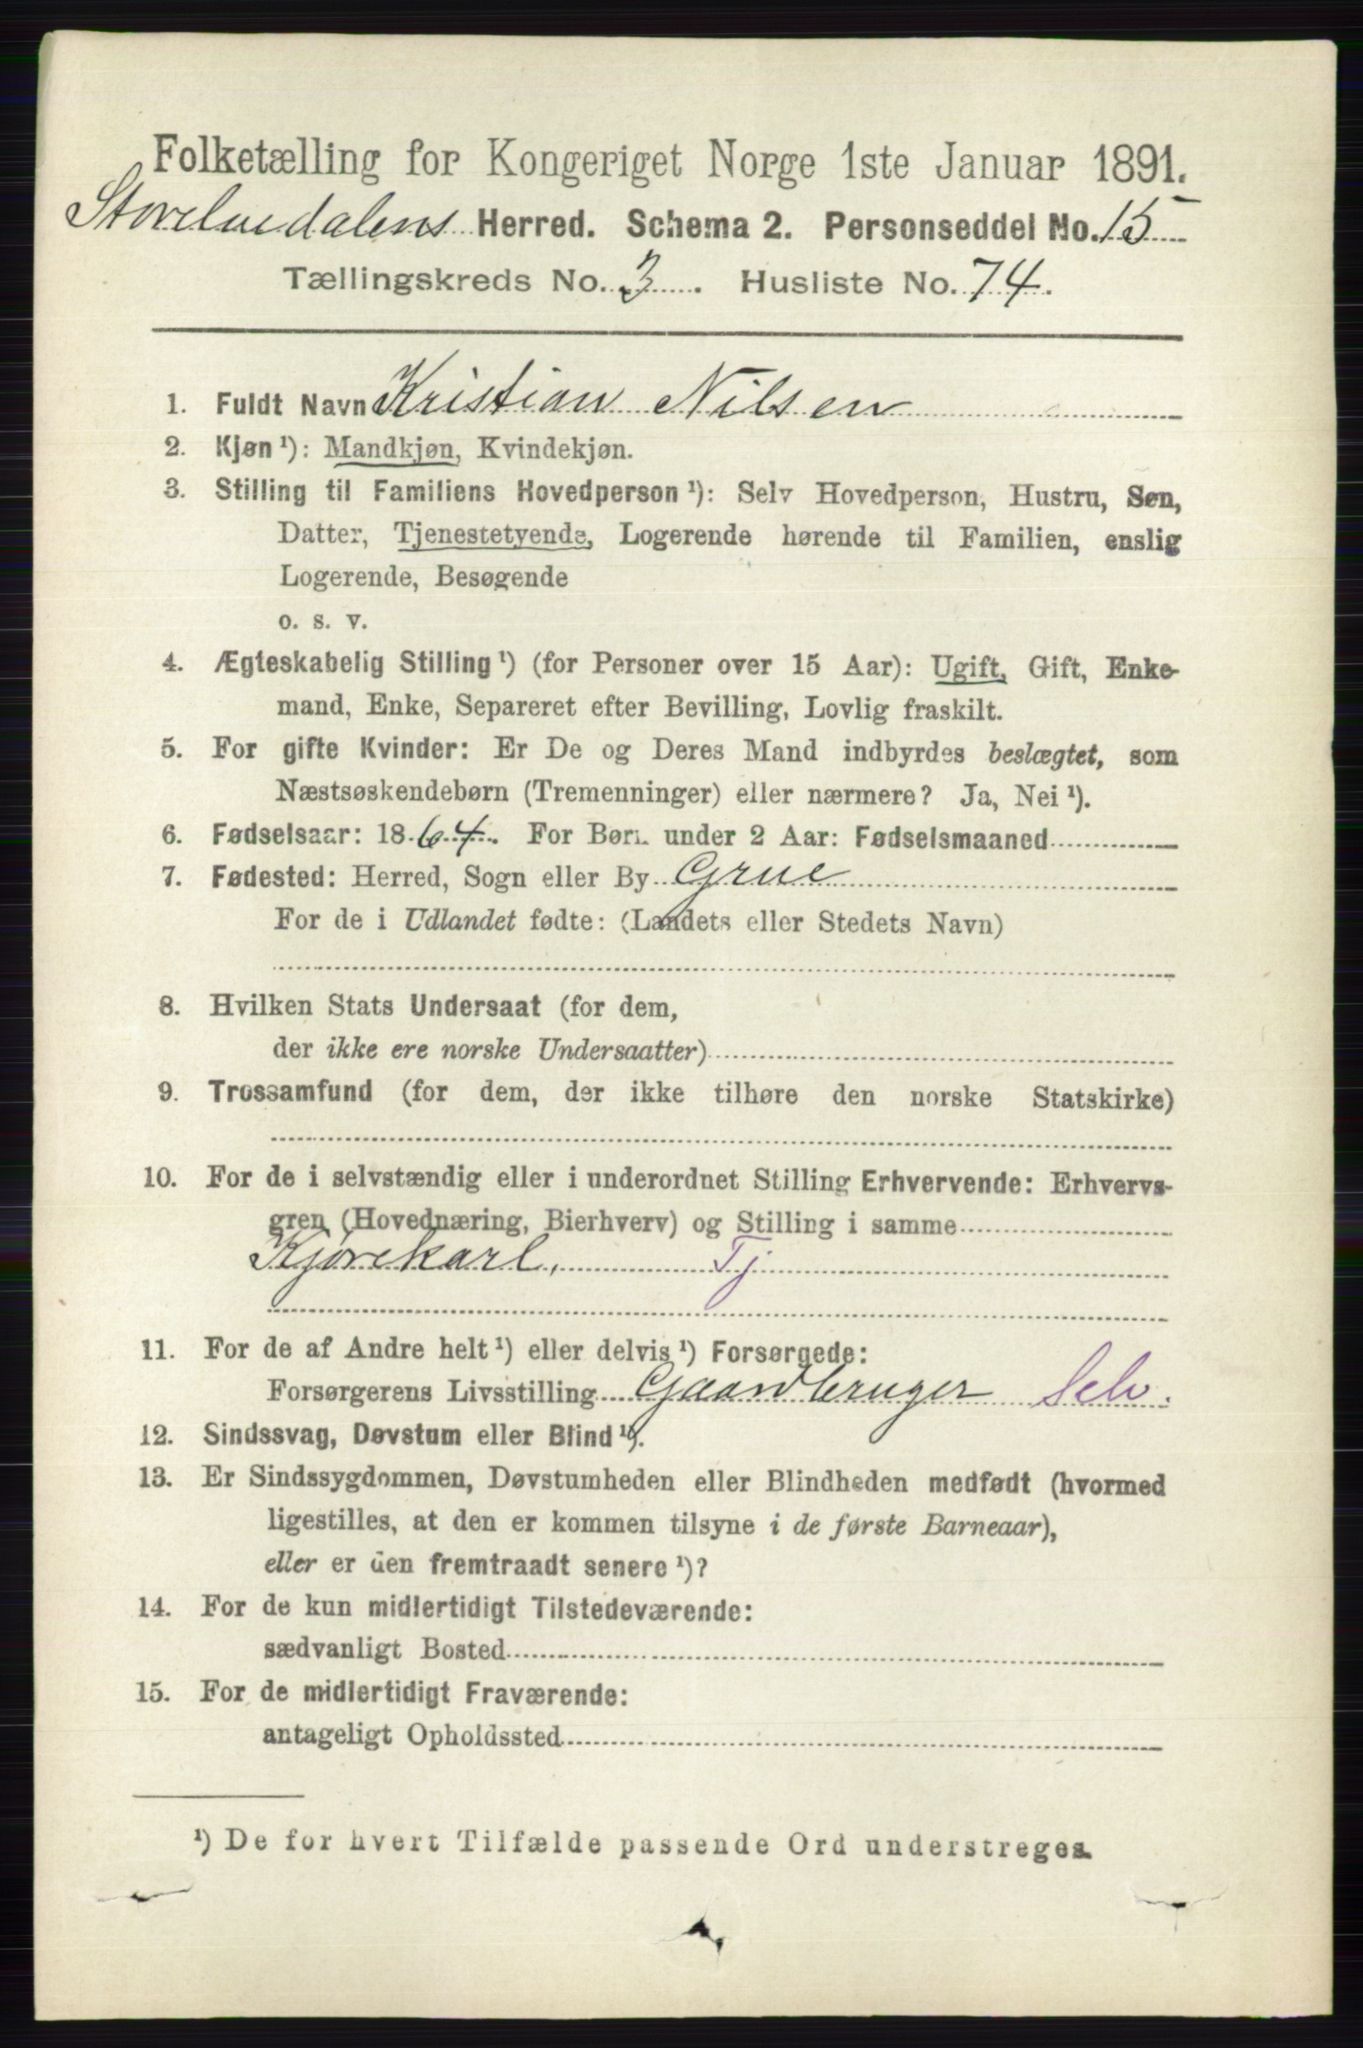 Folketælling for Kongeriget Norge 1ste Januar 1891.
Storelvedalens Herred. Schema 2. Personseddel No. 15
Tællingskreds No. 3. Husliste No. 74.
1. Fuldt Navn Kristian Nilsen
2. Kjøn ¹): Mandkjøn, Kvindekjøn.
3. Stilling til Familiens Hovedperson ¹): Selv Hovedperson, Hustru, Søn,
Datter, Tjenestetyende, Logerende hørende til Familien, enslig
Logerende, Besøgende
o. s. v.
4. Ægteskabelig Stilling ¹) (for Personer over 15 Aar): Ugift, Gift, Enke-
mand, Enke, Separeret efter Bevilling, Lovlig fraskilt.
5. For gifte Kvinder: Er De og Deres Mand indbyrdes beslægtet, som
Næstsøskendebørn (Tremenninger) eller nærmere? Ja, Nei ¹).
6. Fødselsaar: 1864. For Børn under 2 Aar: Fødselsmaaned
7. Fødested: Herred, Sogn eller By Grue
For de i Udlandet fødte: (Landets eller Stedets Navn)
8. Hvilken Stats Undersaat (for dem,
der ikke ere norske Undersaatter)
9. Trossamfund (for dem, der ikke tilhøre den norske Statskirke)
10. For de i selvstændig eller i underordnet Stilling Erhvervende: Erhvervs-
gren (Hovednæring, Bierhverv) og Stilling i samme
Kjørekarl, Tj
11. For de af Andre helt ¹) eller delvis ¹) Forsørgede:
Forsørgerens Livsstilling Gaardbruger Selv.
12. Sindssvag, Døvstum eller Blind ¹).
13. Er Sindssygdommen, Døvstumheden eller Blindheden medfødt (hvormed
ligestilles, at den er kommen tilsyne i de første Barneaar),
eller er den fremtraadt senere ¹)?
14. For de kun midlertidigt Tilstedeværende:
sædvanligt Bosted
15. For de midlertidigt Fraværende:
antageligt Opholdssted
¹) De for hvert Tilfælde passende Ord understreges.